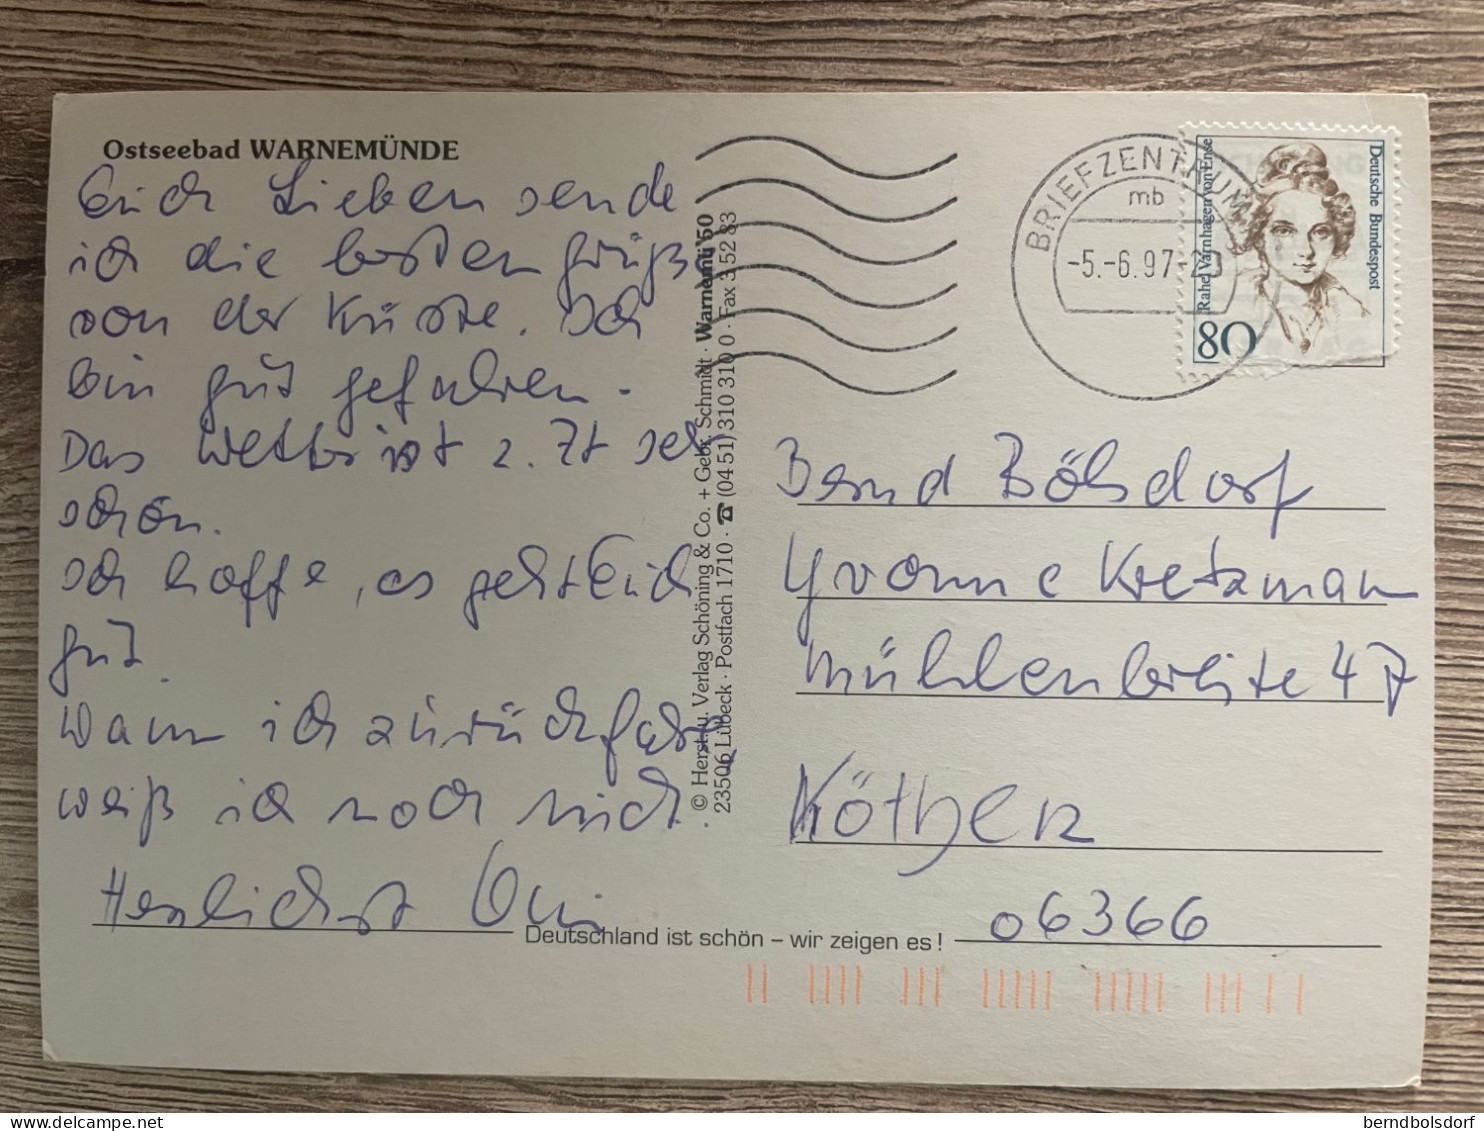 Ostseebad WARNEMÜNDE
Euch Lieben sende
ich die besten Grüße
von der Küste. Ich
bin gut gefahren.
Das Wetter ist z. Zt seh
schön.
Ich hoffe, es geht Euch
gut.
Wann ich zurückfahre
weiß ich noch nicht.
Herzlichst
Deutschland ist schön – wir zeigen es!
© Herst. u. Verlag Schöning & Co. + Gebr. Schmidt · Warnemü 50
23506 Lübeck · Postfach 1710 · ☎ (04 51) 310 310 0 · Fax 3 52 83
BRIEFZENTRUM
mb
-5.-6.97-
Rahel Varnhagen von Ense
Deutsche Bundespost
80
Bernd Bölsdorf
Yvonne Kretzmann
Mühlenbreite 47
Köthen
06366
delcampe.net
berndbolsdorf